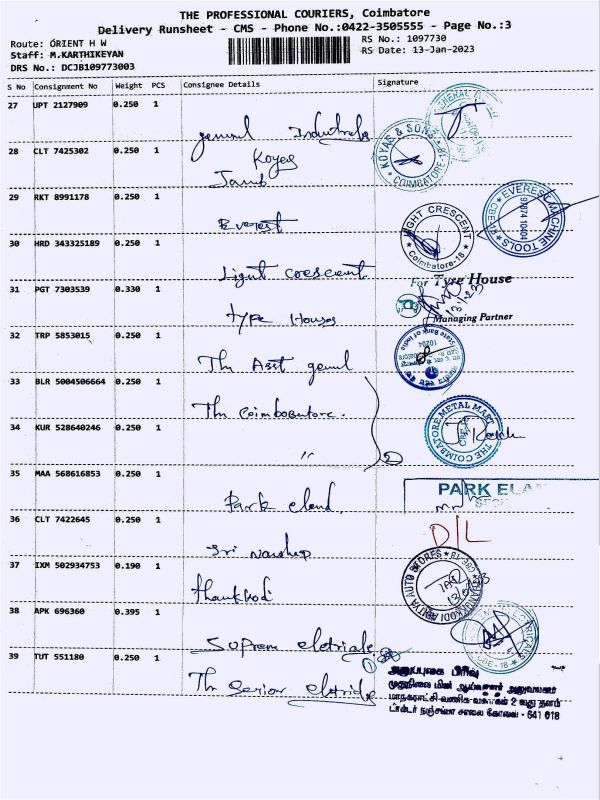 THE PROFESSIONAL COURIERS, Coimbatore
Delivery Runsheet - CMS - Phone No.:0422-3505555 - Page No.:3
Route: ORIENT H W
RS No.: 1097730
Staff: M.KARTHIKEYAN
RS Date: 13-Jan-2023
DRS No.: DCJB109773003
S No Consignment No Weight PCS Consignee Details Signature
27 UPT 2127909 0.250 1
28 CLT 7425302 0.250 1
Koyas
KOYAS & SONS
COIMBATORE
29 RKT 8991178 0.250 1
Everest
EVEREST MACHINE TOOLS
97874 10404
30 HRD 343325189 0.250 1
Light crescent
LIGHT CRESCENT
Coimbatore-18
31 PGT 7303539 0.330 1
For Tyre House
type House
13/1/23
Managing Partner
32 TRP 5853015 0.250 1
The Asst genral
State Bank of India
10204
33 BLR 5004506664 0.250 1
The Coimboutore.
34 KUR 528640246 0.250 1
"
2
THE COIMBATORE METAL MART
35 MAA 568616853 0.250 1
Park eland
PARK ELAN
36 CLT 7422645 0.250 1
D/L
37 IXM 502934753 0.190 1
thankkodi
ADITYA AUTO STORES
38 APK 696360 0.395 1
Suprem eletricals
1
CBE-18
39 TUT 551180 0.250 1
The Senior eletridge
அனுப்புகை பிரிவு
முதுநிலை மின் ஆய்வாளர் அலுவலகம்
மாநகராட்சி வணிக வளாகம் 2 வது தளம்
டாக்டர் நஞ்சப்பா சாலை கோவை - 641 018